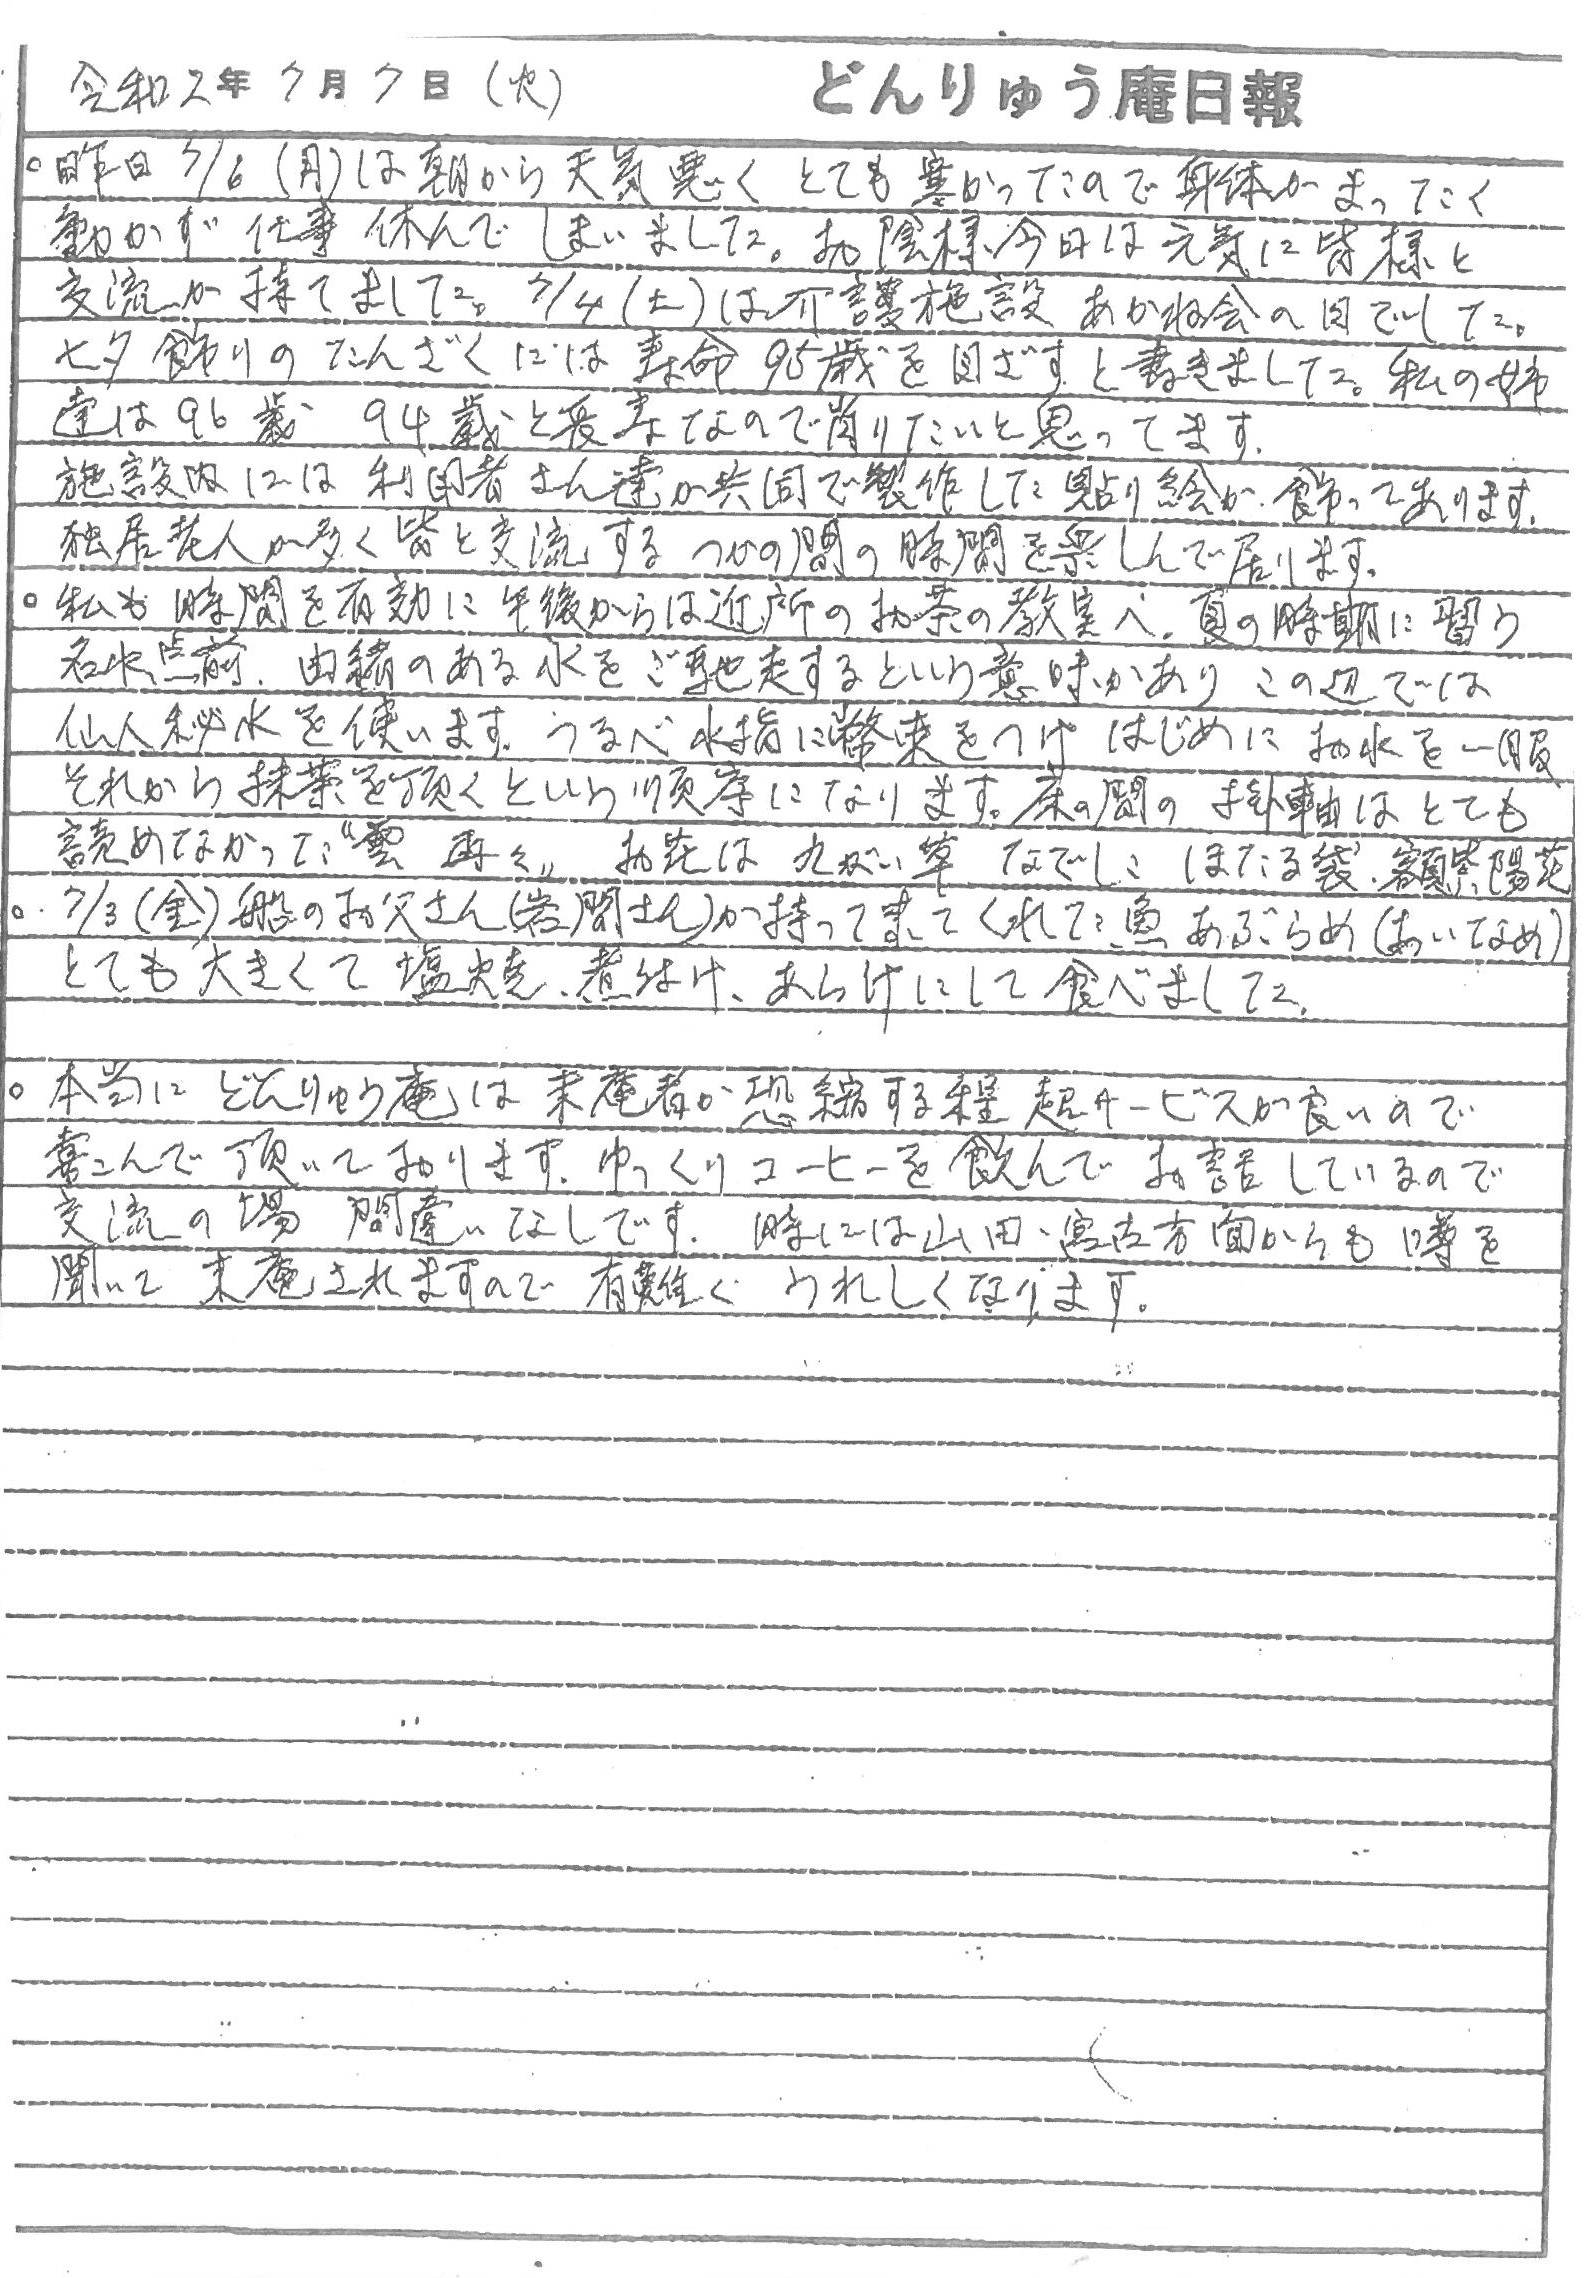 令和2年 7月 7日 (火) どんりゅう庵日報
○昨日 7/6 (月)は朝から天気悪く とても寒かったので身体がまったく
動かず 仕事 休んで しまいました。お陰様、今日は元気に皆様と
交流が持てました。7/4 (土)は介護施設 あかね会の日でした。
七夕飾りの たんざくには 寿命 95歳を目ざすと書きました。私の姉
達は96歳 94歳と長寿なので肖りたいと思ってます。
施設内には利用者さん達が共同で製作した貼り絵が飾ってあります。
独居老人が多く皆と交流する つかの間の時間を楽しんで居ります。
○私も時間を有効に午後からは近所のお茶の教室へ。夏の時期に習う
名水点前、由緒のある水をご馳走するという意味があり この辺では
仙人秘水を使います。つるべ水指に幣束をつけ はじめに お水を一服
それから抹茶を頂くという順序になります。床の間の 掛軸はとても
読めなかった〝雲 再々〟 お花は 九がい草 なでしこ ほたる袋、額紫陽花
○.7/3 (金) 船のお父さん(岩間さん)が持って来てくれた魚 あぶらめ (あいなめ)
とても大きくて 塩焼、煮付け、あら汁にして食べました。
○本当に どんりゅう庵は 来庵者が恐縮する程 超サービスが良いので
喜こんで頂いております。ゆっくりコーヒーを飲んで お話しているので
交流の場 間違いなしです。 時には山田・宮古方面からも噂を
聞いて 来庵されますので 有難く うれしくなります。